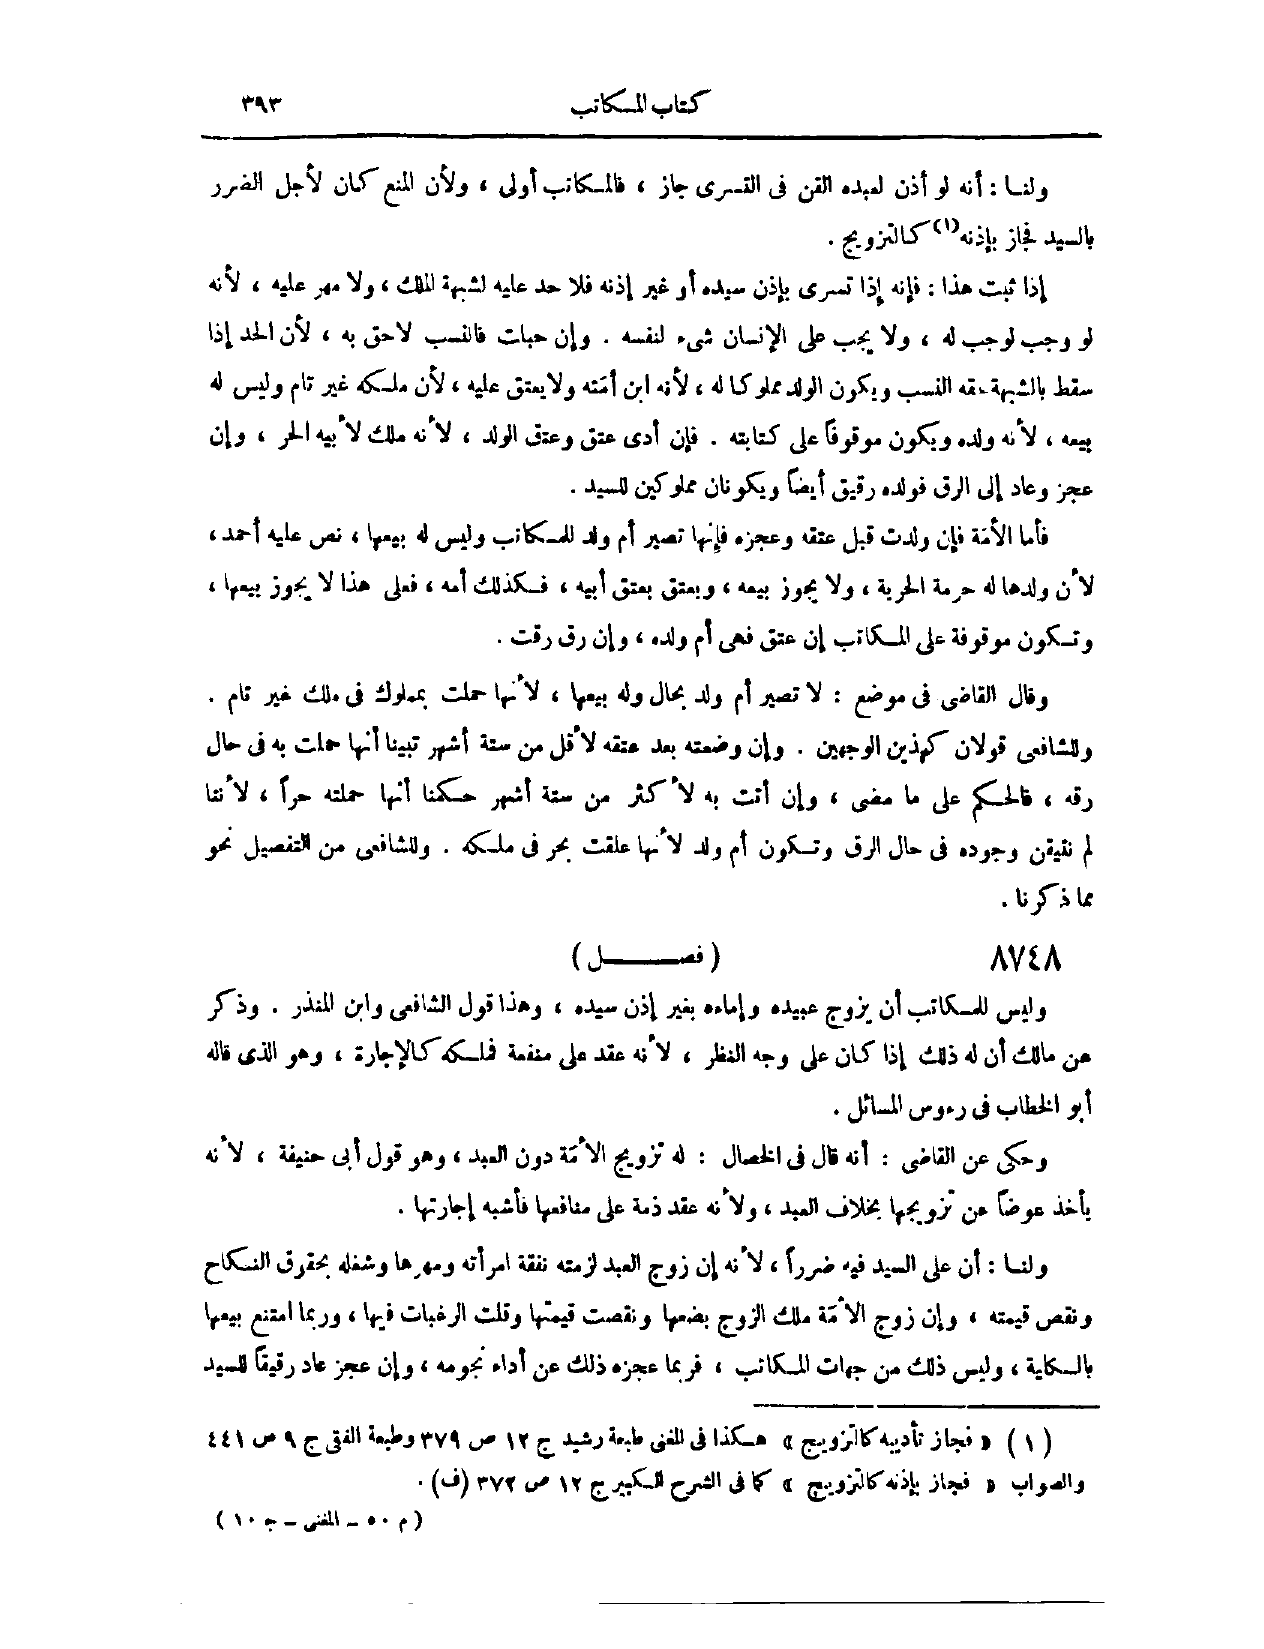 كتاب المكاتب
٣٩٣
ولنا : أنه لو أذن لعبده القن فى التسرى جاز ، فالمكاتب أولى ، ولأن المنع كان لأجل الضرر
بالسيد فجاز بإذنه(١) كالتزويج .
إذا ثبت هذا : فإنه إذا تسرى بإذن سيده أو غير إذنه فلا حد عليه لشبهة الملك ، ولا مهر عليه ، لأنه
لو وجب لوجب له ، ولا يجب على الإنسان شىء لنفسه . وإن حبلت فالنسب لاحق به ، لأن الحد إذا
سقط بالشبهة لحقه النسب ويكون الولد مملوكا له ، لأنه ابن أمته ولا يعتق عليه ، لأن ملكه غير تام وليس له
بيعه ، لأنه ولده ويكون موقوفاً على كتابته . فإن أدى عتق وعتق الولد ، لأنه ملك لأبيه الحر ، وإن
عجز وعاد إلى الرق فولده رقيق أيضاً ويكونان مملوكين للسيد .
فأما الأمة فإن ولدت قبل عتقه وعجزه فإنها تصير أم ولد للمكاتب وليس له بيعها ، نص عليه أحمد ،
لأن ولدها له حرمة الحرية ، ولا يجوز بيعه ، ويعتق بعتق أبيه ، فكذلك أمه ، فعلى هذا لا يجوز بيعها ،
وتكون موقوفة على المكاتب إن عتق فهى أم ولده ، وإن رق رقت .
وقال القاضى فى موضع : لا تصير أم ولد بحال وله بيعها ، لأنها حملت بمملوك فى ملك غير تام .
وللشافعى قولان كهذين الوجهين . وإن وضعته بعد عتقه لأقل من ستة أشهر تبينا أنها حملت به فى حال
رقه ، فالحكم على ما مضى ، وإن أتت به لأكثر من ستة أشهر حكمنا أنها حملته حراً ، لأننا
لم نتيقن وجوده فى حال الرق وتكون أم ولد لأنها علقت بحر فى ملكه . وللشافعى من التفصيل نحو
مما ذكرنا .
٨٧٤٨ ( فصل )
وليس للمكاتب أن يزوج عبيده وإماءه بغير إذن سيده ، وهذا قول الشافعى وابن المنذر . وذكر
عن مالك أن له ذلك إذا كان على وجه النظر ، لأنه عقد على منفعة فملكه كالإجارة ، وهو الذى قاله
أبو الخطاب فى رءوس المسائل .
وحكى عن القاضى : أنه قال فى الخصال : له تزويج الأمة دون العبد ، وهو قول أبى حنيفة ، لأنه
يأخذ عوضاً عن تزويجها بخلاف العبد ، ولأنه عقد ذمة على منافعها فأشبه إجارتها .
ولنا : أن على السيد فيه ضرراً ، لأنه إن زوج العبد لزمته نفقة امرأته ومهرها وشغله بحقوق النكاح
ونقص قيمته ، وإن زوج الأمة ملك الزوج بضعها ونقصت قيمتها وقلت الرغبات فيها ، وربما امتنع بيعها
بالكلية ، وليس ذلك من جهات المكاتب ، فربما عجزه ذلك عن أداء نجومه ، وإن عجز عاد رقيقاً للسيد
( ١ ) « فجاز تأديبه كالتزويج » هكذا فى المغنى طبعة رشيد ج ١٢ ص ٣٧٩ وطبعة الفقى ج ٩ ص ٤٤١
والصواب « فجاز بإذنه كالتزويج » كما فى الشرح الكبير ج ١٢ ص ٣٧٢ (ف) .
( م ٥٠ – المغنى – ج ١٠ )